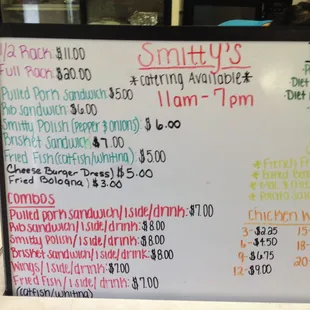 1/2 Rack: $11.00
Full Rack: $20.00
Pulled Pork Sandwich $5.00
Rib Sandwich: $6.00
Smitty Polish (pepper & onions): $6.00
Brisket Sandwich: $7.00
Fried Fish (catfish/whiting): $5.00
Cheese Burger Dress) $5.00
Fried Bologna) $3.00
COMBOS
Pulled pork sandwich/1 side/drink: $7.00
Rib sandwich/1 side/drink: $8.00
Smitty polish/1 side/drink: $8.00
Brisket sandwich/1 side/drink: $8.00
Wings/1 side/drink: $7.00
Fried Fish/1 side/drink: $7.00
(catfish/whiting)
Smitty's
*catering Available*
11am-7pm
Diet
Diet
*French
*Baked
*Mac &
*Potato
Chicken W
3-$2.25
6-$4.50
9-$6.75
12-$9.00
15-
18-
20-